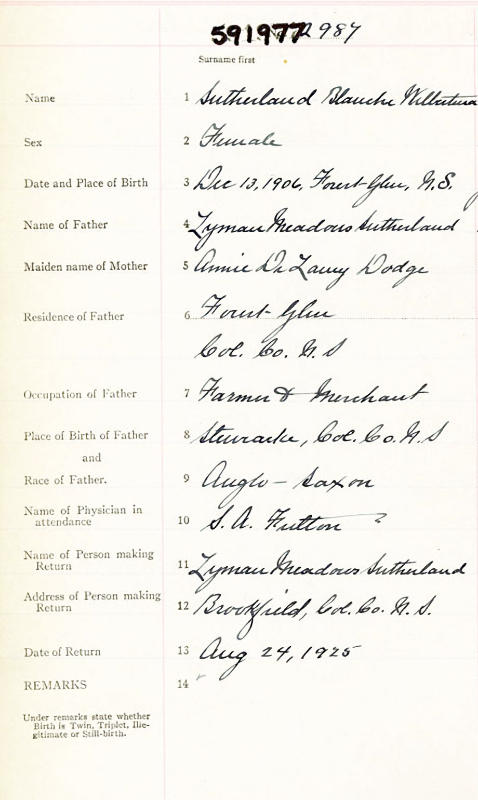 591977 2987
Surname first
Name 1 Sutherland Blanche
Sex 2 Female
Date and Place of Birth 3 Dec 13, 1906, Forest Glen, N.S.
Name of Father 4 Lyman Meadows Sutherland
Maiden name of Mother 5 Annie De Lancy Dodge
Residence of Father 6 Forest Glen
Col. Co. N.S
Occupation of Father 7 Farmer & Merchant
Place of Birth of Father 8 Stewiacke, Col. Co. N.S
and
Race of Father. 9 Anglo-Saxon
Name of Physician in
attendance 10 S. A. Fulton ?
Name of Person making
Return 11 Lyman Meadows Sutherland
Address of Person making
Return 12 Brookfield, Col. Co. N.S.
Date of Return 13 Aug 24, 1925
REMARKS 14
Under remarks state whether
Birth is Twin, Triplet, Ille-
gitimate or Still-birth.